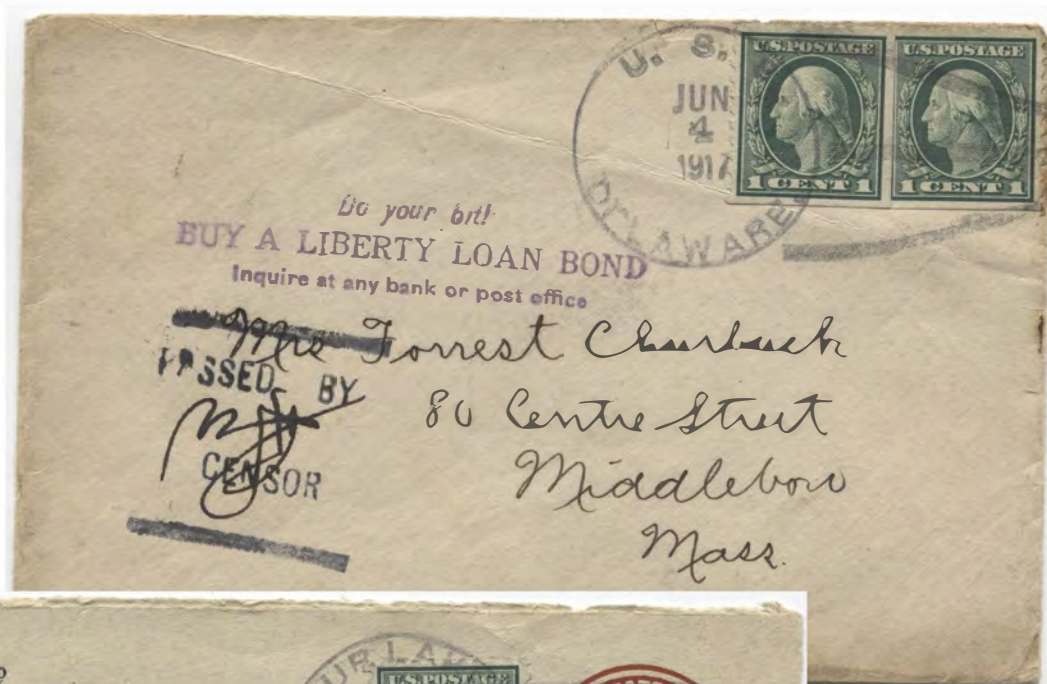 U. S.
JUN
4
1917
DELAWARE
U.S. POSTAGE
1 CENT 1
U.S. POSTAGE
1 CENT 1
Do your bit!
BUY A LIBERTY LOAN BOND
Inquire at any bank or post office
Mrs Forrest Churbuck
80 Centre Street
Middleboro
Mass.
PASSED BY
CENSOR
U.S. POSTAGE